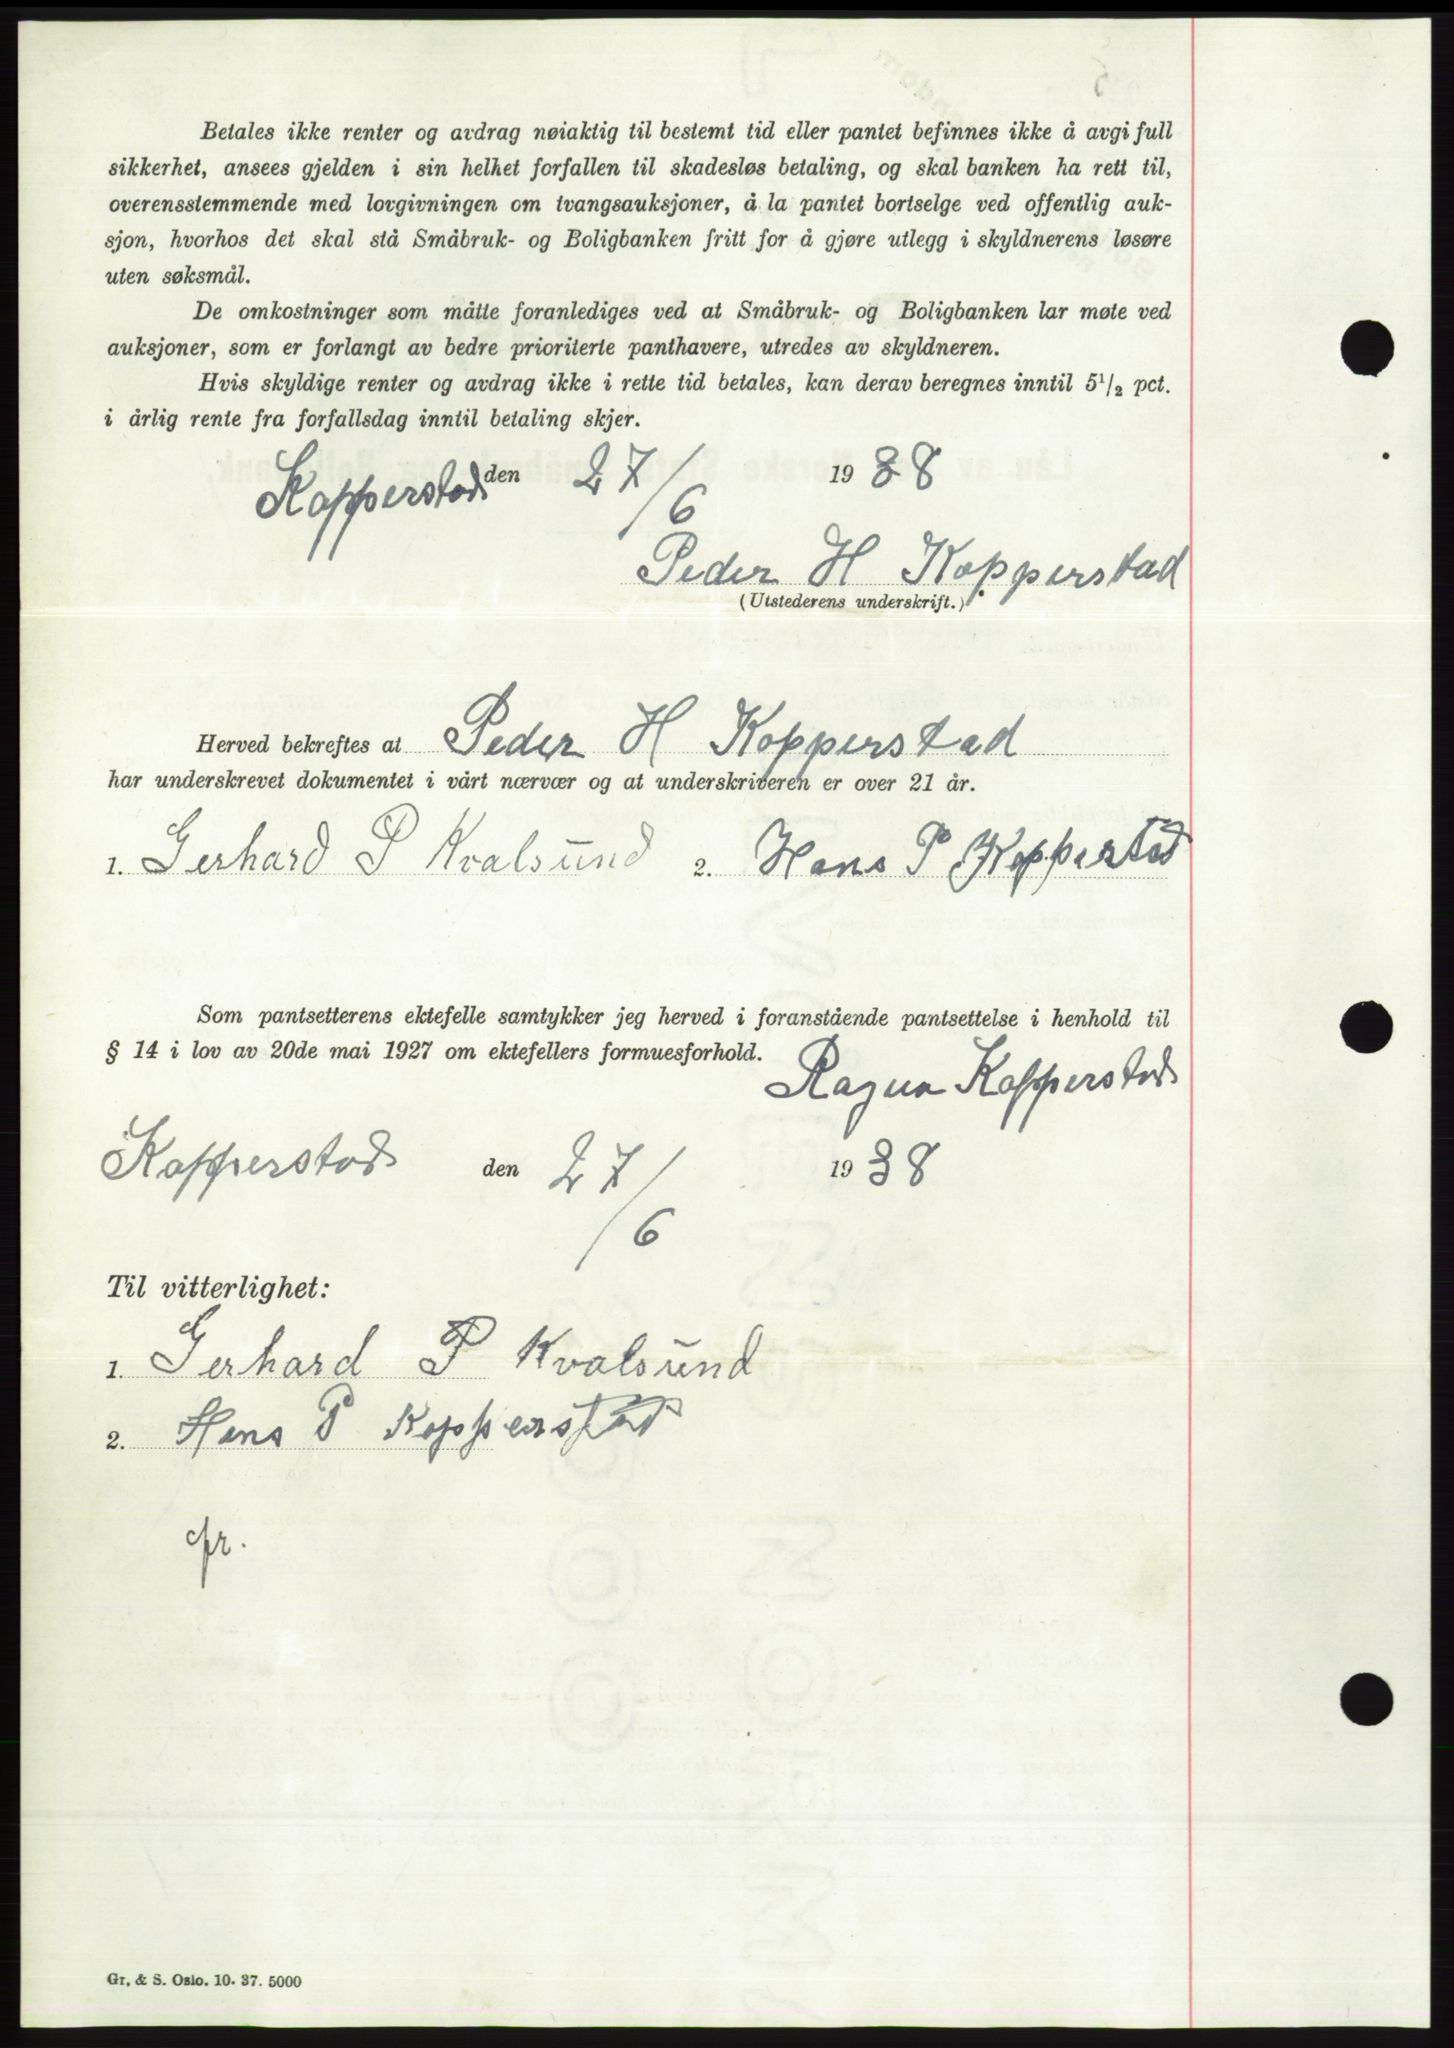 Betales ikke renter og avdrag nøiaktig til bestemt tid eller pantet befinnes ikke å avgi full
sikkerhet, ansees gjelden i sin helhet forfallen til skadesløs betaling, og skal banken ha rett til,
overensstemmende med lovgivningen om tvangsauksjoner, å la pantet bortselge ved offentlig auk-
sjon, hvorhos det skal stå Småbruk- og Boligbanken fritt for å gjøre utlegg i skyldnerens løsøre
uten søksmål.
De omkostninger som måtte foranlediges ved at Småbruk- og Boligbanken lar møte ved
auksjoner, som er forlangt av bedre prioriterte panthavere, utredes av skyldneren.
Hvis skyldige renter og avdrag ikke i rette tid betales, kan derav beregnes inntil 5 1/2 pct.
i årlig rente fra forfallsdag inntil betaling skjer.
Kopperstad den 27/6 1938
Peder H Kopperstad
(Utstederens underskrift.)
Herved bekreftes at Peder H Kopperstad
har underskrevet dokumentet i vårt nærvær og at underskriveren er over 21 år.
1. Gerhard P Kvalsund 2. Hans P Kopperstad
Som pantsetterens ektefelle samtykker jeg herved i foranstående pantsettelse i henhold til
§ 14 i lov av 20de mai 1927 om ektefellers formuesforhold.
Ragna Kopperstad
Kopperstad den 27/6 1938
Til vitterlighet:
1. Gerhard P Kvalsund
2. Hans P Kopperstad
Gr. & S. Oslo. 10. 37. 5000